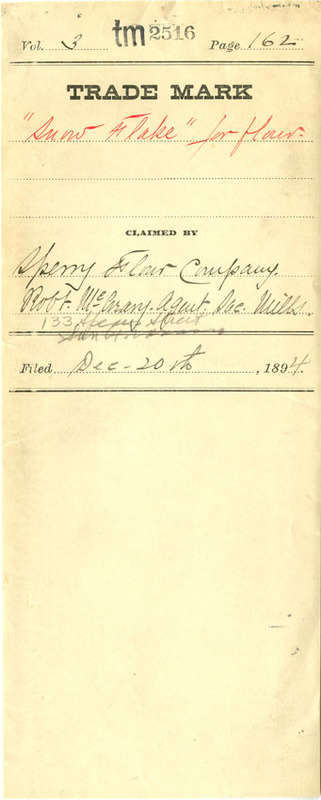 Vol. 3 tm 2516 Page 162
TRADE MARK
"Snow Flake" for flour.
CLAIMED BY
Sperry Flour Company.
Robt. McCrary Agent, Sac. Mills.
133 Spear Street
San Francisco
Filed Dec-20th, 1894.